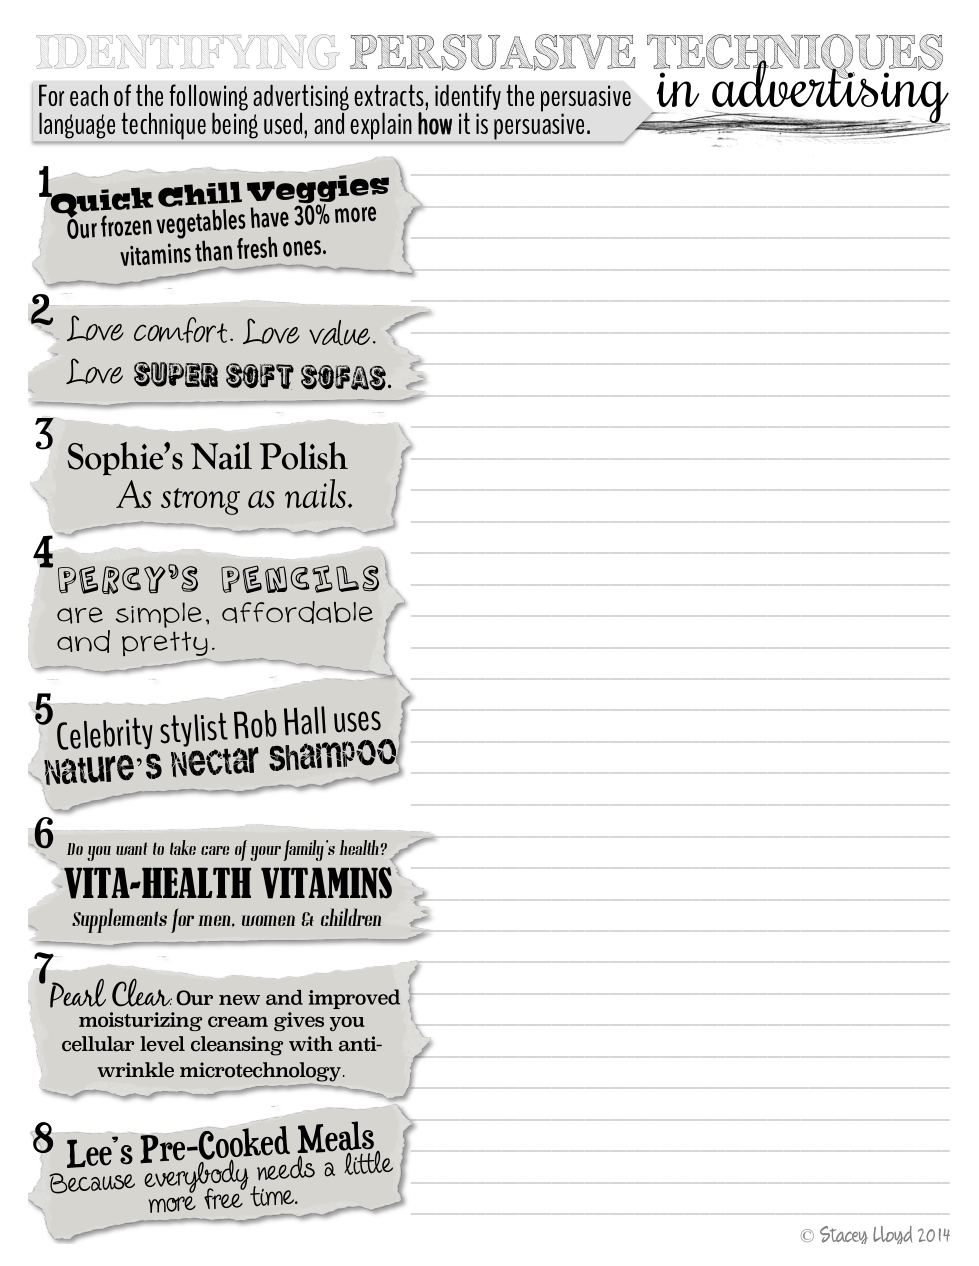 IDENTIFYING PERSUASIVE TECHNIQUES
in advertising
For each of the following advertising extracts, identify the persuasive
language technique being used, and explain how it is persuasive.
1
Quick Chill Veggies
Our frozen vegetables have 30% more
vitamins than fresh ones.
2
Love comfort. Love value.
Love SUPER SOFT SOFAS.
3
Sophie's Nail Polish
As strong as nails.
4
PERCY'S PENCILS
are simple, affordable
and pretty.
5
Celebrity stylist Rob Hall uses
Nature's Nectar Shampoo
6
Do you want to take care of your family's health?
VITA-HEALTH VITAMINS
Supplements for men, women & children
7
Pearl Clear: Our new and improved
moisturizing cream gives you
cellular level cleansing with anti-
wrinkle microtechnology.
8
Lee's Pre-Cooked Meals
Because everybody needs a little
more free time.
© Stacey Lloyd 2014